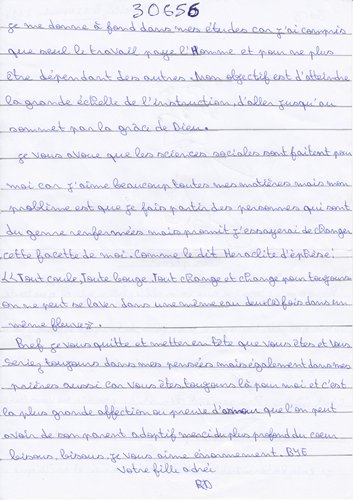 30656
je me donne à fond dans mes études car j'ai compris
que seul le travail paye l'Homme et pour ne plus
être dépendant des autres. Mon objectif est d'atteindre
la grande échelle de l'instruction, d'aller jusqu'au
sommet par la grâce de Dieu.
je vous avoue que les sciences sociales sont faitent pour
moi car j'aime beaucoup toutes mes matières mais mon
problème est que je fais partir des personnes qui sont
du genre renfermées mais promit j'essayerai de changer
cette facette de moi. Comme le dit Heraclite d'éphèse :
<< Tout coule, Toute bouge Tout change et change pour toujours
on ne peut se laver dans une même eau deux(2) fois dans un
même fleuve >>.
Bref je vous quitte et metter en tête que vous êtes et vous
seriez toujours dans mes pensées mais également dans mes
prières aussi car vous êtes toujours là pour moi et c'est
la plus grande affection ou preuve d'amour que l'on peut
avoir de son parent adoptif merci du plus profond du coeur
bisous, bisous, je vous aime énormement. BYE
Votre fille adrée
RD